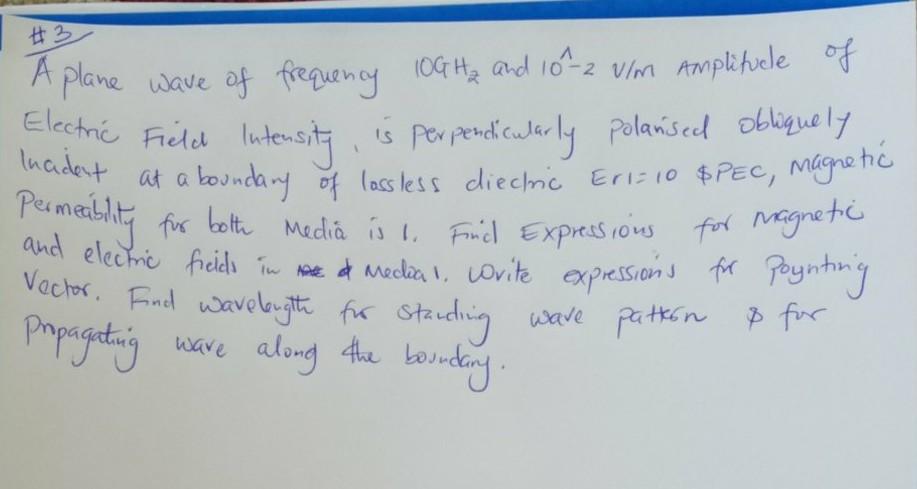 #3
A plane wave of frequency 10GHz and 10^-2 V/m Amplitude of
Electric Field Intensity, is perpendicularly polarised obliquely
Incident at a boundary of lossless diectric Er1=10 $PEC, Magnetic
Permeability for both Media is 1. Find Expressions for Magnetic
and electric fields in & Media 1. Write expressions for Poynting
Vector. Find wavelength for standing wave pattern & for
Propagating wave along the boundary.